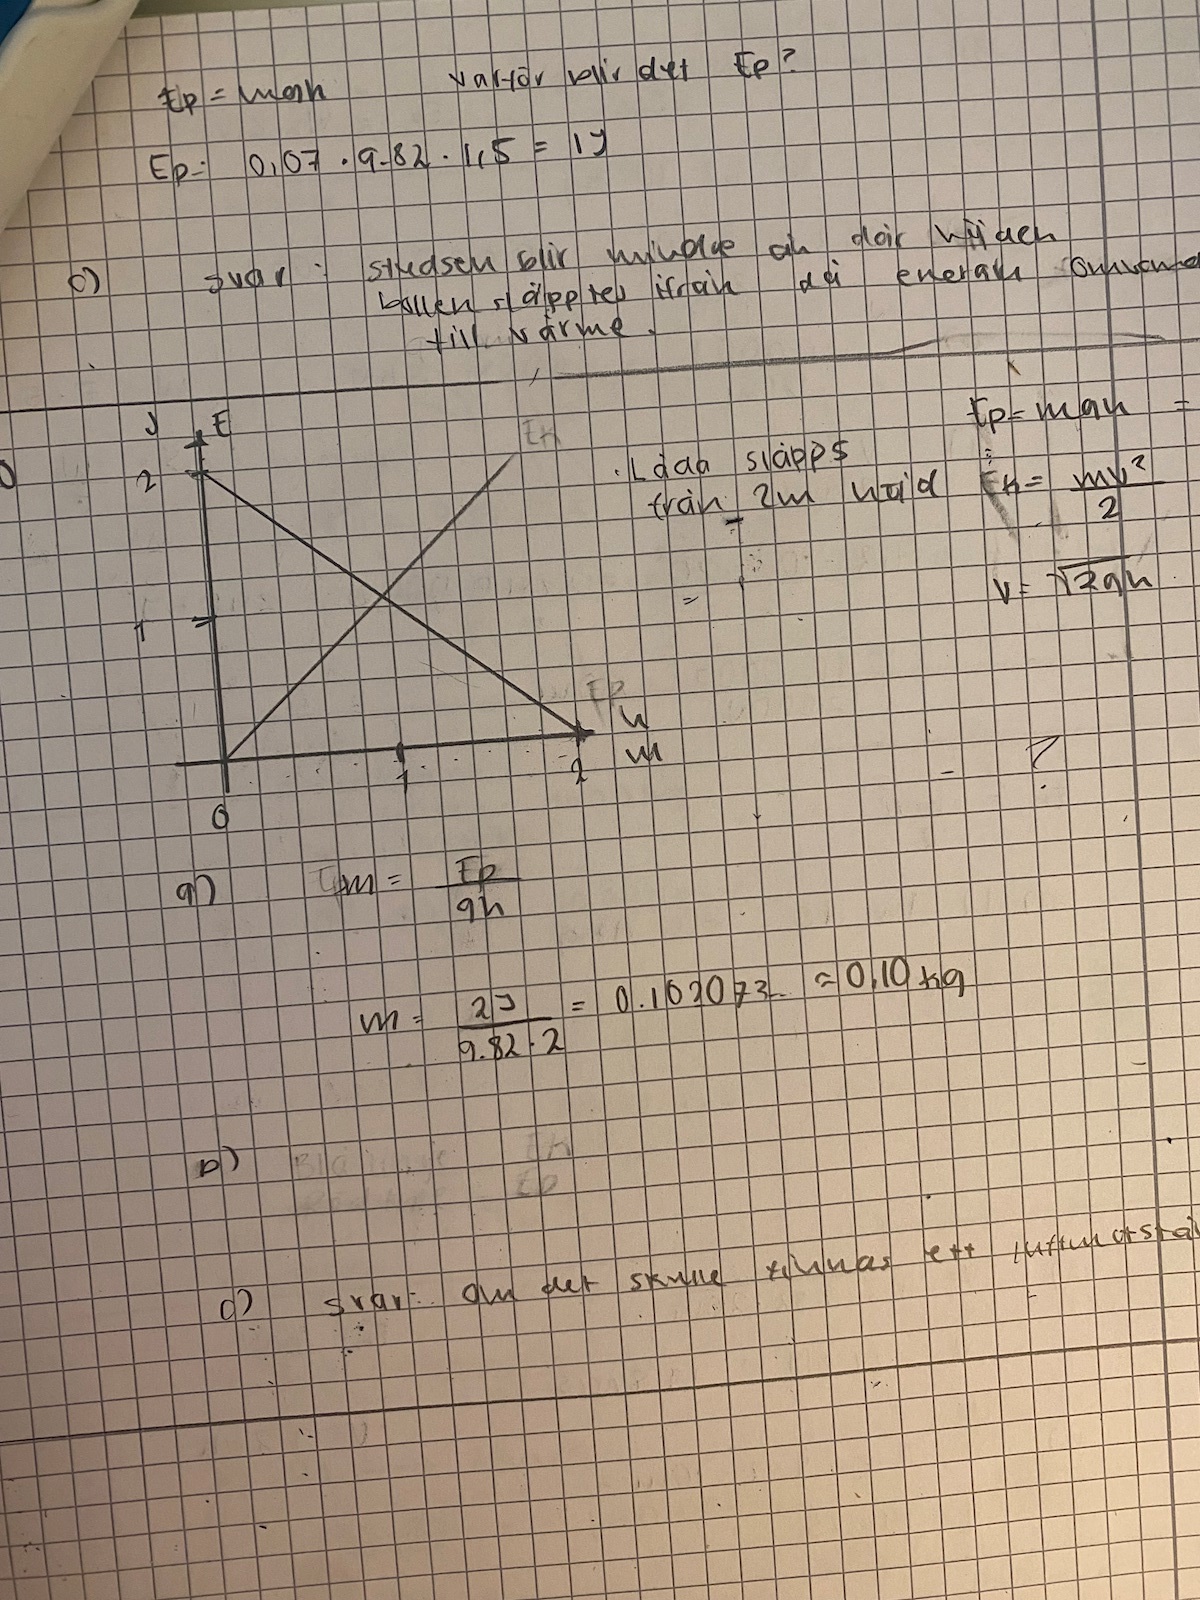 Ep = mgh varför blir det Ep?
Ep = 0,07 · 9.82 · 1,5 = 1J
c) svar: studsen blir mindre än där höjden
bollen släpptes ifrån då energin omvand
till värme.
J E
2
1
0
1
2
h
m
Ek
Ep
Låda släpps
från 2m höjd
=
Ep = mgh =
Ek = mv²/2
v = √2gh
?
a) m = Ep/gh
m = 2J/9.82·2 = 0.102073 ≈ 0,10 kg
b) Ek
Ep
c) svar: om det skulle finnas ett luftmotstå